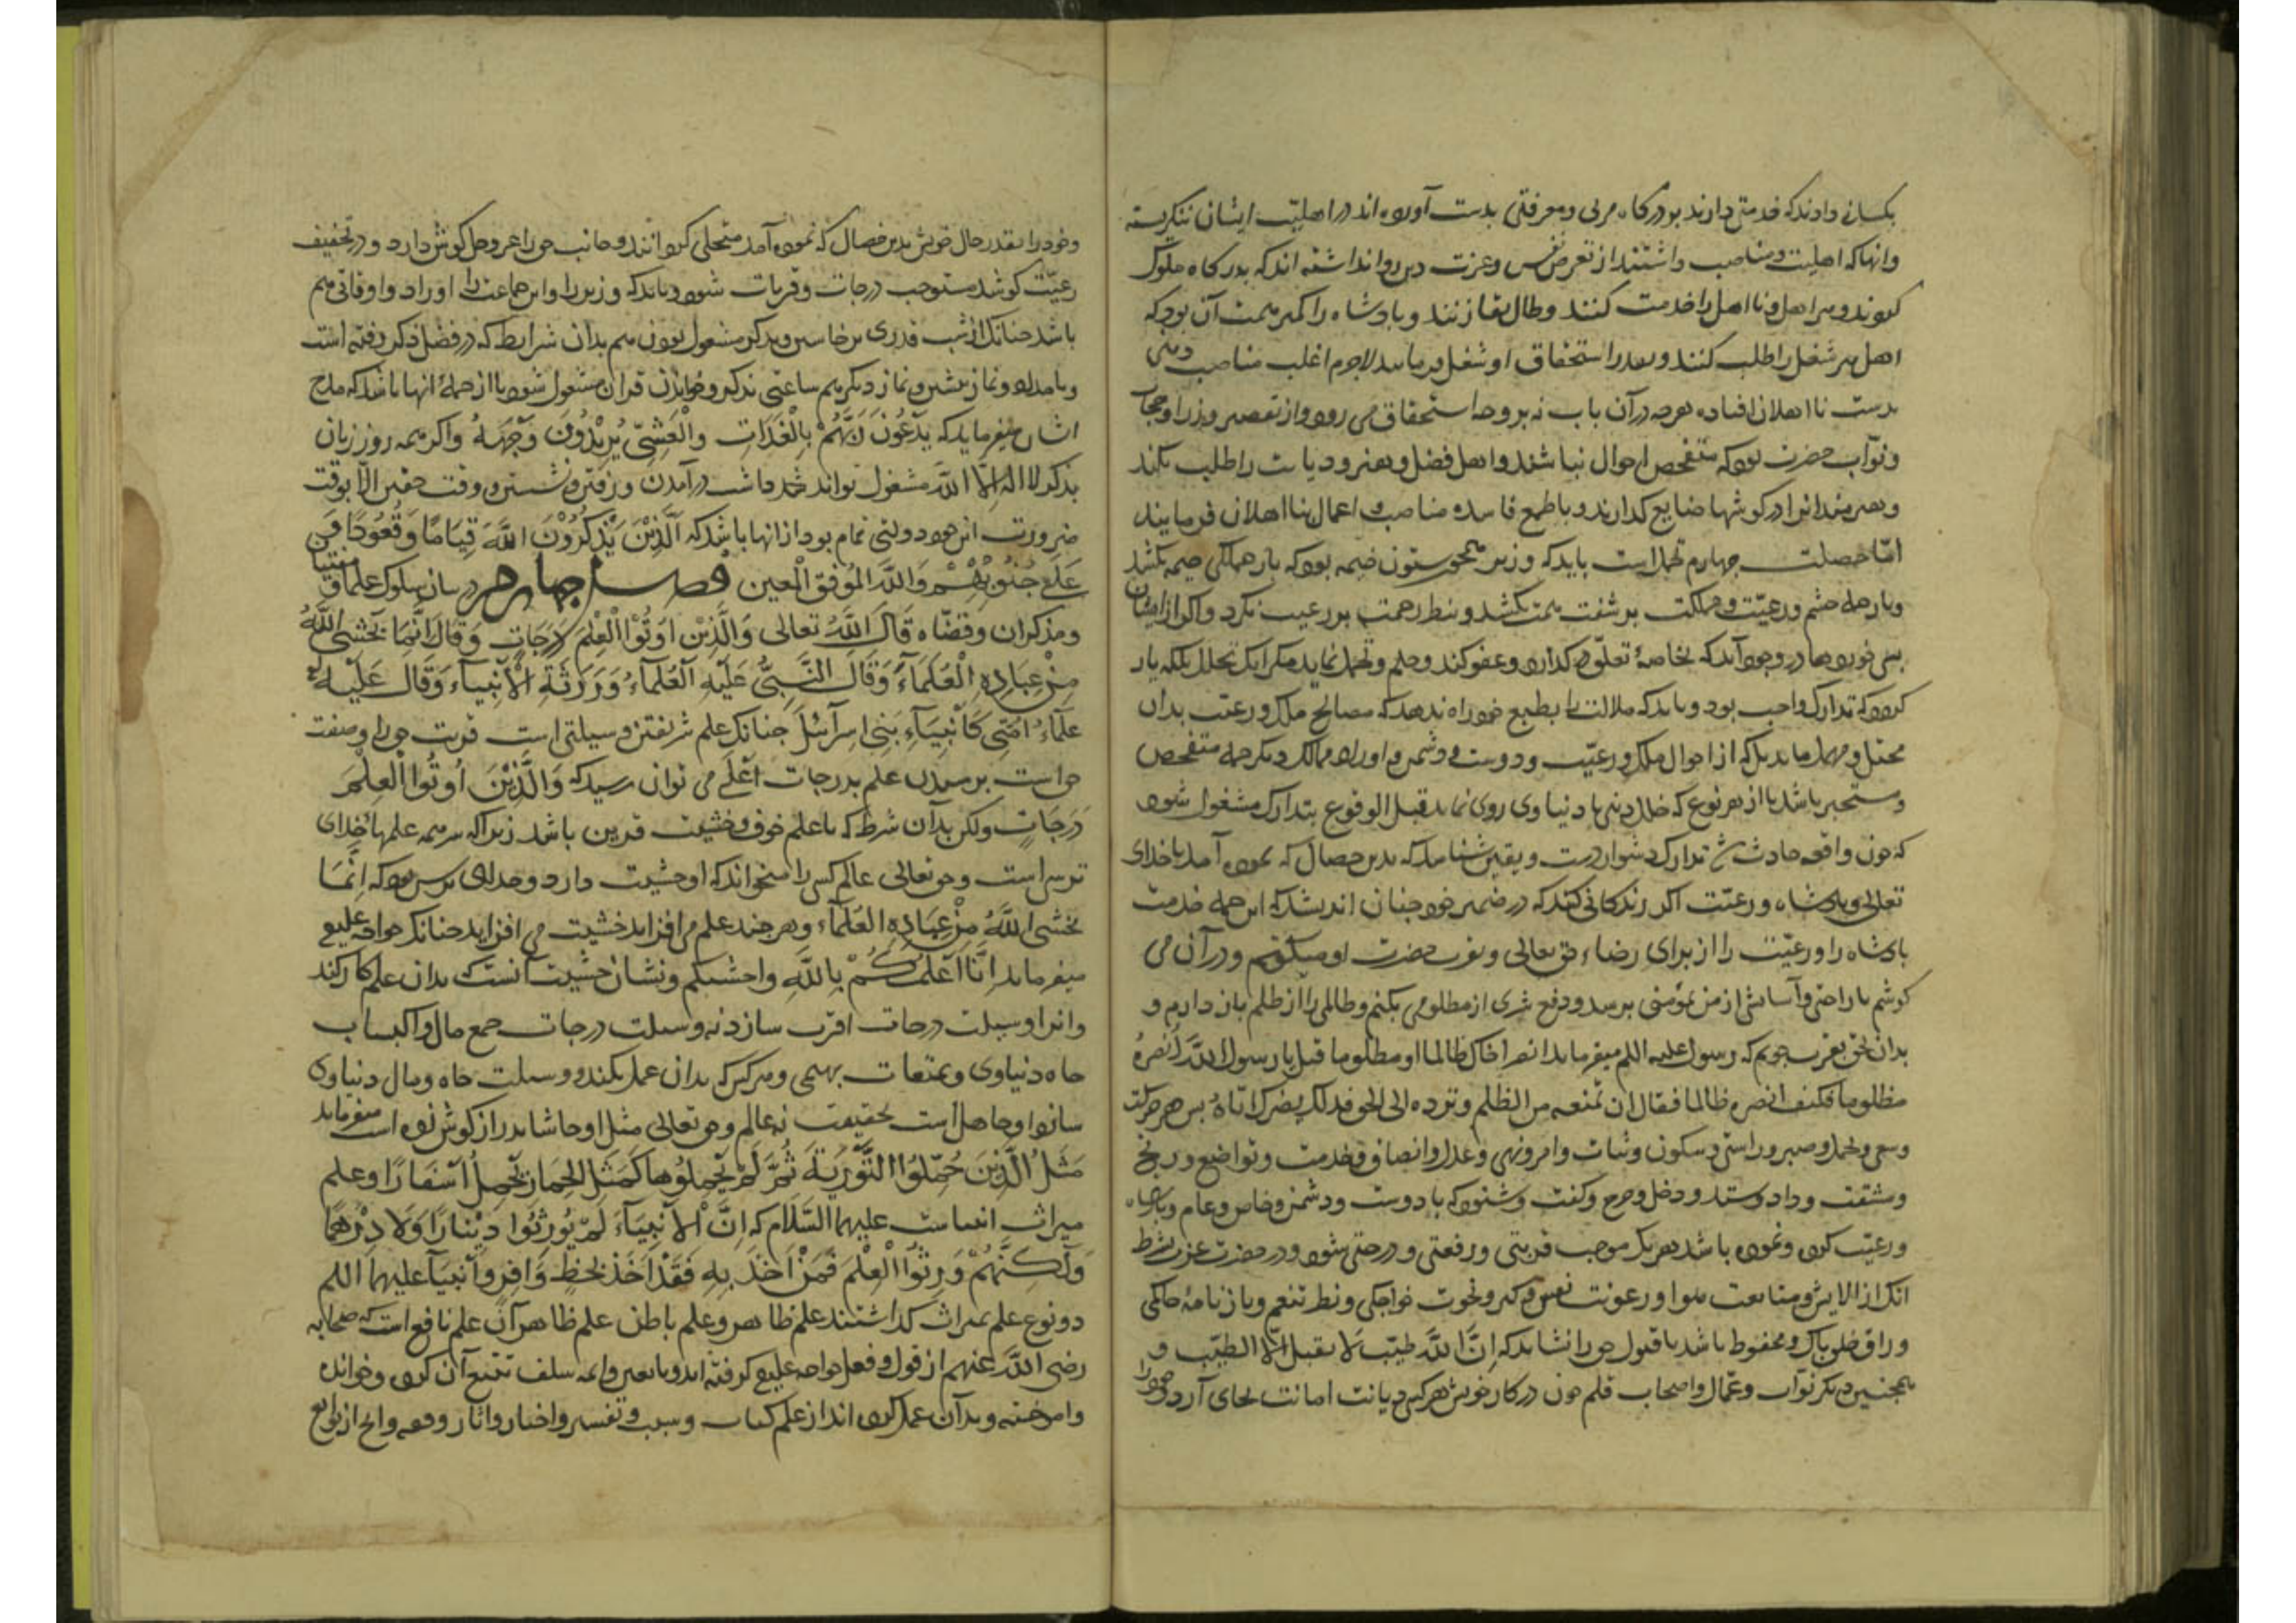 بکسانی دادند که خدمتی دارند بود درگاه مربی و معرفتی بدست آورده اند در اهلیت ایشان ننگریسته
وانها که اهلیت و مناصب داشتند از تعرض نفس وعزت دین روا نداشته اند که بدرگاه ملوک
کردند و هر اهل و نااهل را خدمت کنند وطال بقا زنند و پادشاه را کمتر همت آن بود که
اهل هر شغل را طلب کنند و بقدر استحقاق او شغل فرمایند لاجرم اغلب مناصب دینی
بدست نااهلان افتاده هرچه درآن باب نه بروجه استحقاق می رود از تقصیر وزرا و حجاب
ونوّاب حضرت بود که متفحص احوال نباشند و اهل فضل وهنر و دیانت را طلب نکنند
وهنرمندانرا در کوشها ضایع کذارند و باطمع فاسده مناصب و اعمال بنااهلان فرمایند
امّا خصلت چهارم تحمل است باید که وزیر همچو ستون خیمه بود که بار همکی خیمه بکشد
وبار جمله حشم ورعیّت و مملکت بر شفت همت بکشد وبنظر رحمت بر رعیت نکرد واکر از ایشان
بس خوردهها در وجود آید که بخاصهٔ تعلّق دارد کذارد وعفو کند وحلم وتحمل نماید مکر انک تحلل بملکه یار
کردد که تدارک واجب بود و باید که ملالت را بطبع خود راه ندهد که مصالح ملک و رعیت بدان
مختل و مهمل ماند بلکه از احوال ملک و رعیّت و دوست و دشمن و اوراد ممالک دیکر جمله متفحص
و مستخبر باشد تا از هر نوع که خلل دینی یا دنیاوی روی نماید قبل الوقوع بتدارک مشغول شود
که چون واقعه حادث شد تدارک دشوار دست و یقین شناسد که بدین خصال که نموده آمد باخدای
تعالی و پادشاه ورعیّت اکر زندکانی کند که در ضمیر خود چنان اندیشد که این جمله خدمت
پادشاه را و رعیّت را از برای رضاء حق تعالی و تقرب حضرت او میکنم و درآن می
کوشم تا راحتی و آسایشی از من بمؤمنی برسد و دفع شری از مظلومی بکنم وظالمی را از ظلم باز دارم و
بدان بحق تقرب جویم که رسول علیه السلم میفرماید انصر اخاک ظالما او مظلوما قیل یا رسول اللّه انصرهُ
مظلوما فکیف انصره ظالما فقال ان تمنعه من الظلم و ترده الی الحق فذلک نصرک ایّاهُ بس هر حرکت
وسعی و تحمل و صبر و راستی و سکون وثبات وامر ونهی و عدل و انصاف و خدمت وتواضع و رنج
ومشقت و داد و ستد و دخل وخرج وکفت وشنود که با دوست و دشمن و خاص و عام و پادشاه
ورعیّت کرده ونموده باشد هریک موجب قربتی و رفعتی و درجتی شود و در حضرت عزت بشرط
انک از الایش و متابعت هوا و رعونت نفس و کبر ونخوت خواجکی ونظر تنعم وباز نامهٔ حاکمی
و راق خلق پاک و محفوظ باشد تا قبول حق را شاید که اِنَّ اللّهَ طیّب لا یقبل الّا الطیّب و
همچنین دیکر نوّاب وعمّال و اصحاب قلم چون در کار خویش هرکس دیانت امانت بجای آرد و خود را
وخود را بقدر حال خویش بدین خصال که نموده آمد متحلی کردانند وجانب حق را عز وجل کوش دارد و در تخفیف
رعیّت کوشد مستوجب درجات و قربات شود و باید که وزیر را و این جماعت را اوراد و اوقاتی هم
باشد چنانک از شب قدری برخاستن وبذکر مشغول بودن هم بدان شرایط که در فصل ذکر رفته است
وبامداد و نماز پیشین و نماز دیکر هم ساعتی بذکر و خواندن قرآن مشغول شود تا از جملهٔ انها باشد که مدح
ایشان میفرماید که یَدْعُونَ رَبَّهُمْ بِالْغَدَاتِ وَالْعَشِیِّ یُرِیْدُونَ وَجْهَهُ واکر همه روز زبان
بذکر لا اله اِلَّا اللَّه مشغول تواند شد در آمدن و رفتن و نشستن و وقت خفتن الّا بوقت
ضرورت این خود دولتی تمام بود از انها باشد که اَلَّذِیْنَ یَذْکُرُوْنَ اللَّهَ قِیَامًا وَقُعُودًا وَ
عَلَی جُنُوبِهِمْ وَاللَّهُ المُوَفِّق المُعین فصل چهارم در بیان سلوک علما و مفتیان
و مذکران وقضّاه قَالَ اللَّهُ تعالی وَالَّذِیْنَ اُوتُوْا الْعِلْمَ دَرَجَاتٍ وَقَالَ اِنَّمَا یَخْشَی اللَّهَ
مِنْ عِبَادِهِ الْعُلَمَآءُ وَقَالَ النَّبِیُّ عَلَیْهِ العُلَمَآءُ وَرَثَةُ الْاَنْبِیَآءِ وَقَالَ عَلَیْهِ
عُلَمَآءُ اُمَّتِی کَاَنْبِیَآءِ بَنِی اسرآئیل چنانک علم شریفترین وسیلتی است قربت حق را وصفت
حق است برسیدن علم بدرجات اَعْلَی می توان رسید که وَالَّذِیْنَ اُوتُوا الْعِلْمَ
دَرَجَاتٍ ولکن بدآن شرط که با علم خوف و خشیت قرین باشد زیرا که سرمهٔ علمها خدای
ترسی است وحق تعالی عالم کسی را میخواند که او خشیت دارد و خدای ترس بود که اِنَّمَا
یَخْشَی اللَّهَ مِنْ عِبَادِهِ العُلَمَآءُ وهر چند علم می افزاید خشیت می افزاید چنانک خواجه علیه
میفرماید اِنَّا اَعْلَمُکُمْ بِاللَّهِ واخشیکم ونشان خشیت آنست که بدان علم کار کند
وانرا وسیلت درجات اخرت سازد نه وسیلت درجات جمع مال و اکتساب
جاه دنیاوی و تمتعات بهیمی وهر کس که بدان عمل نکند و وسیلت جاه ومال دنیاوی
سازد او جاهل است بحقیقت نه عالم وحق تعالی مثل او حاشا بدراز کوش زده است میفرماید
مَثَلُ الَّذِیْنَ حُمِّلُوا التَّوْرٰیةَ ثُمَّ لَمْ یَحْمِلُوهَا کَمَثَلِ الحِمَارِ یَحْمِلُ اَسْفَارًا وعلم
میراث انبیاست علیهما السَّلَام که اِنَّ الْاَنْبِیَآءَ لَمْ یُورِثُوا دِیْنَارًا وَلَا دِرْهَمًا
وَلٰکِنَّهُمْ وَرِثُوا الْعِلْمَ فَمَنْ اَخَذَ بِهِ فَقَدْ اَخَذَ بِحَظٍّ وَافِرٍ وانبیآء علیهما السلم
دو نوع علم بمیراث کذاشتند علم ظاهر و علم باطن علم ظاهر آن علم نافع است که صحابه
رضی اللَّه عنهم از قول و فعل خواجه علیه کرفته اند و تابعین وایمه سلف تتبع آن کرده و خوانده
و اموخته و بدآن عمل کرده اند از علم کتاب و سنت و تفسیر و اخبار و اثار وفقه وانچ از توابع